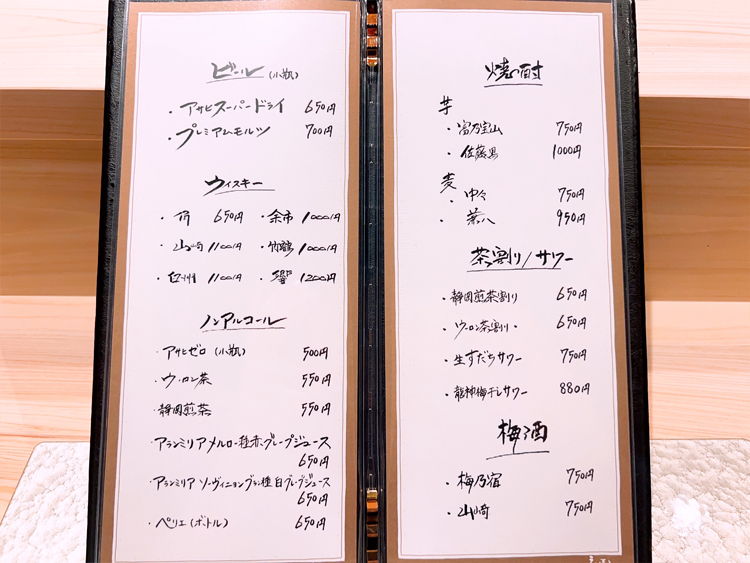 ビール(小瓶)
・アサヒスーパードライ 650円
・プレミアムモルツ 700円
ウィスキー
・ 650円 ・余市 1000円
・山崎 1100円 ・竹鶴 1000円
・白州 1100円 ・響 1200円
ノンアルコール
・アサヒゼロ(小瓶) 500円
・ウーロン茶 550円
・静岡煎茶 550円
・アランミリア メルロー種赤グレープジュース
650円
・アランミリア ソーヴィニョンブラン種白グレープジュース
650円
・ペリエ(ボトル) 650円
焼酎
芋
・富乃宝山 750円
・佐藤黒 1000円
麦
・中々 750円
・兼八 950円
茶割り/サワー
・静岡煎茶割り 650円
・ウーロン茶割り・ 650円
・生すだちサワー 750円
・龍神梅干しサワー 880円
梅酒
・梅乃宿 750円
・山崎 750円